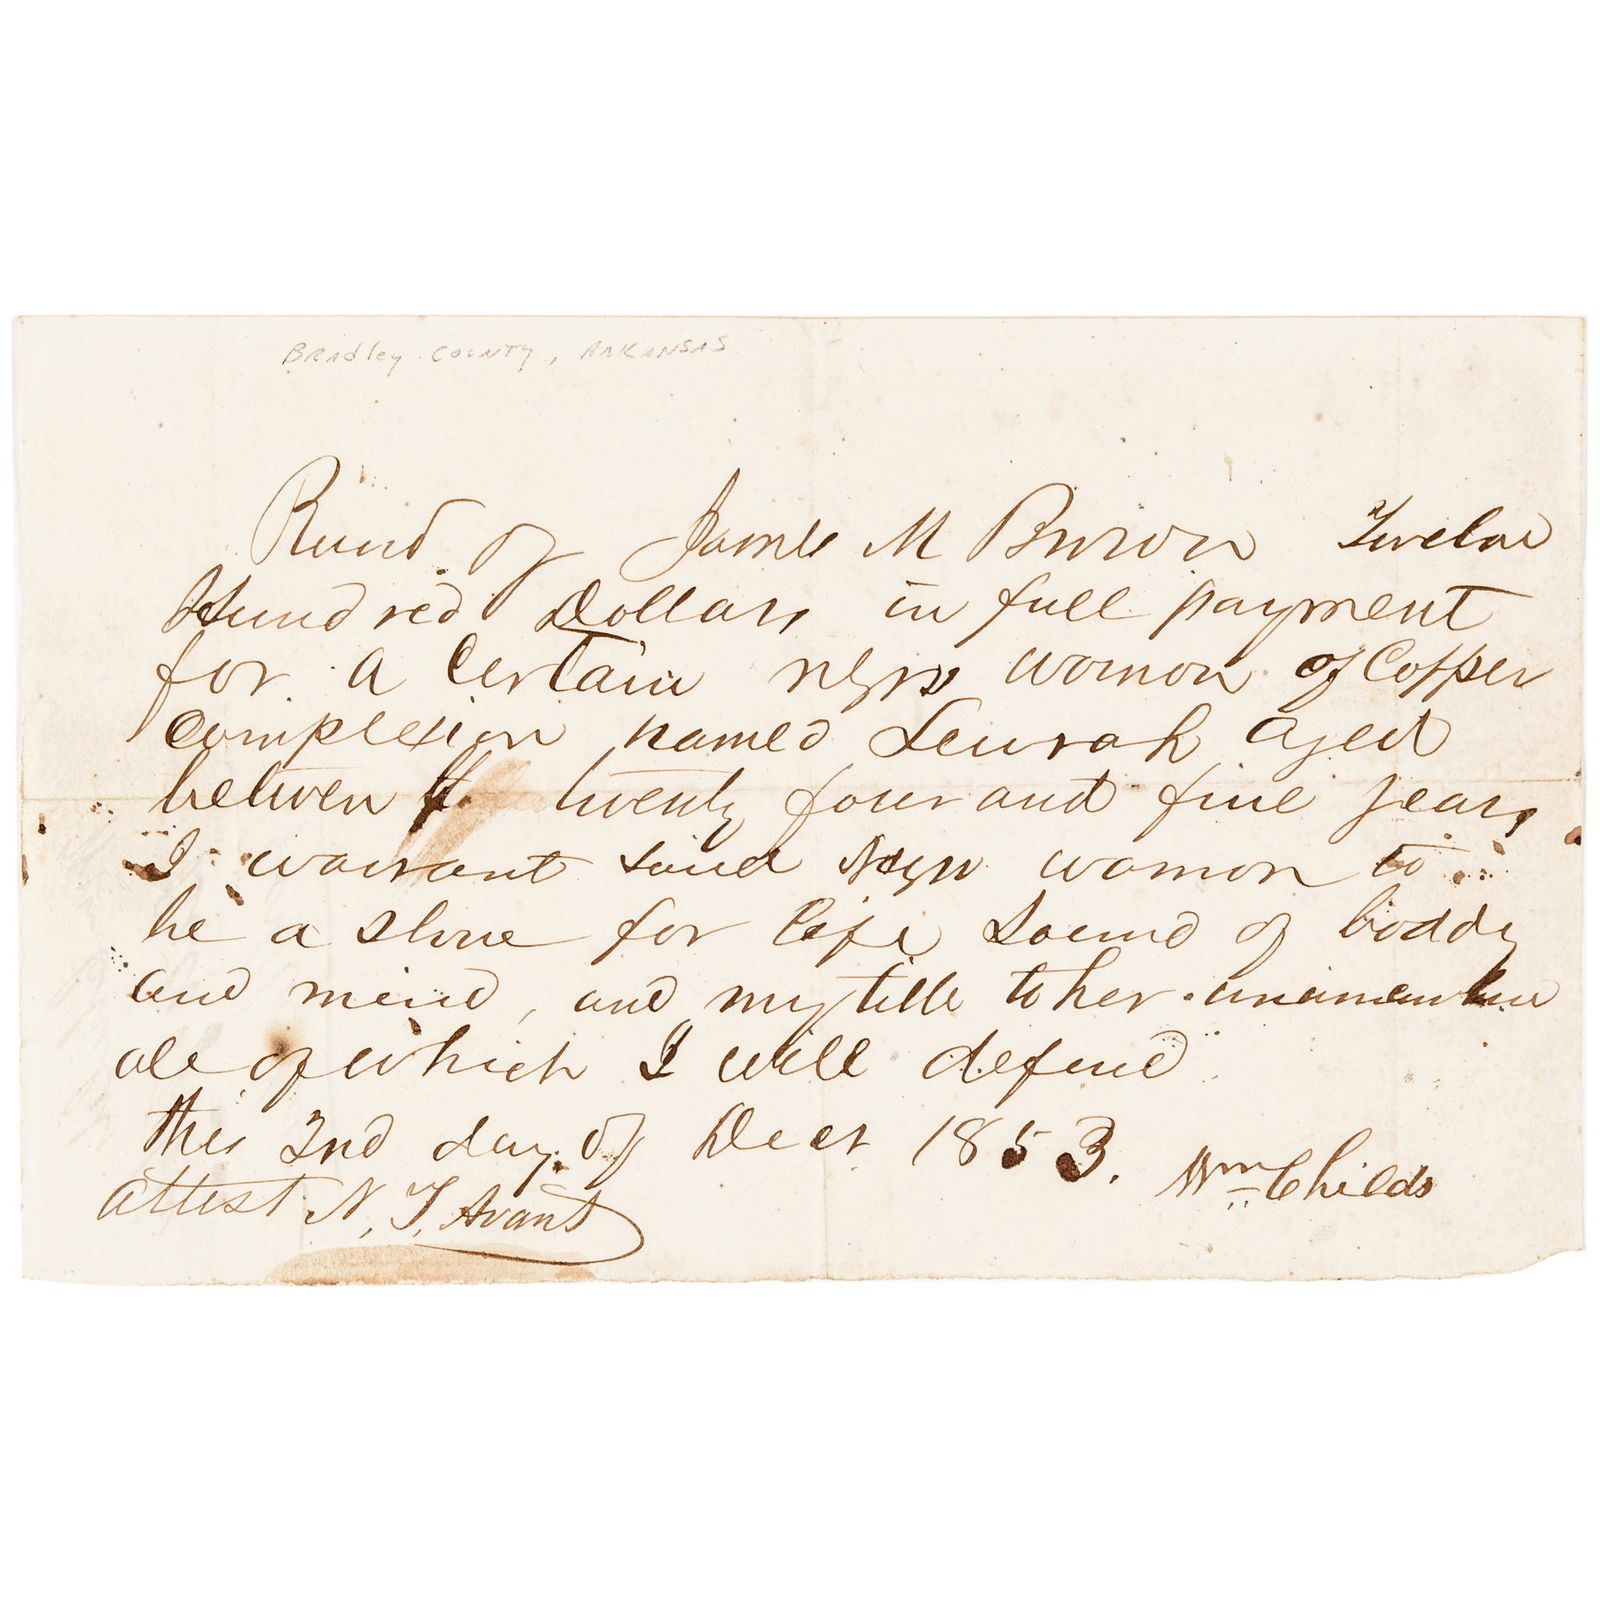 Bradley County, Arkansas
Recvd of James M Brown Twelve
Hundred Dollars in full payment
for a Certain negro woman of Copper
Complexion named aged
between twenty four and five years
I warrant said Negro woman to
be a slave for life Sound of boddy
and mind, and my title to her
all of which I will defend
this 2nd day of Decr 1853. Wm Childs
attest N. T. Avant